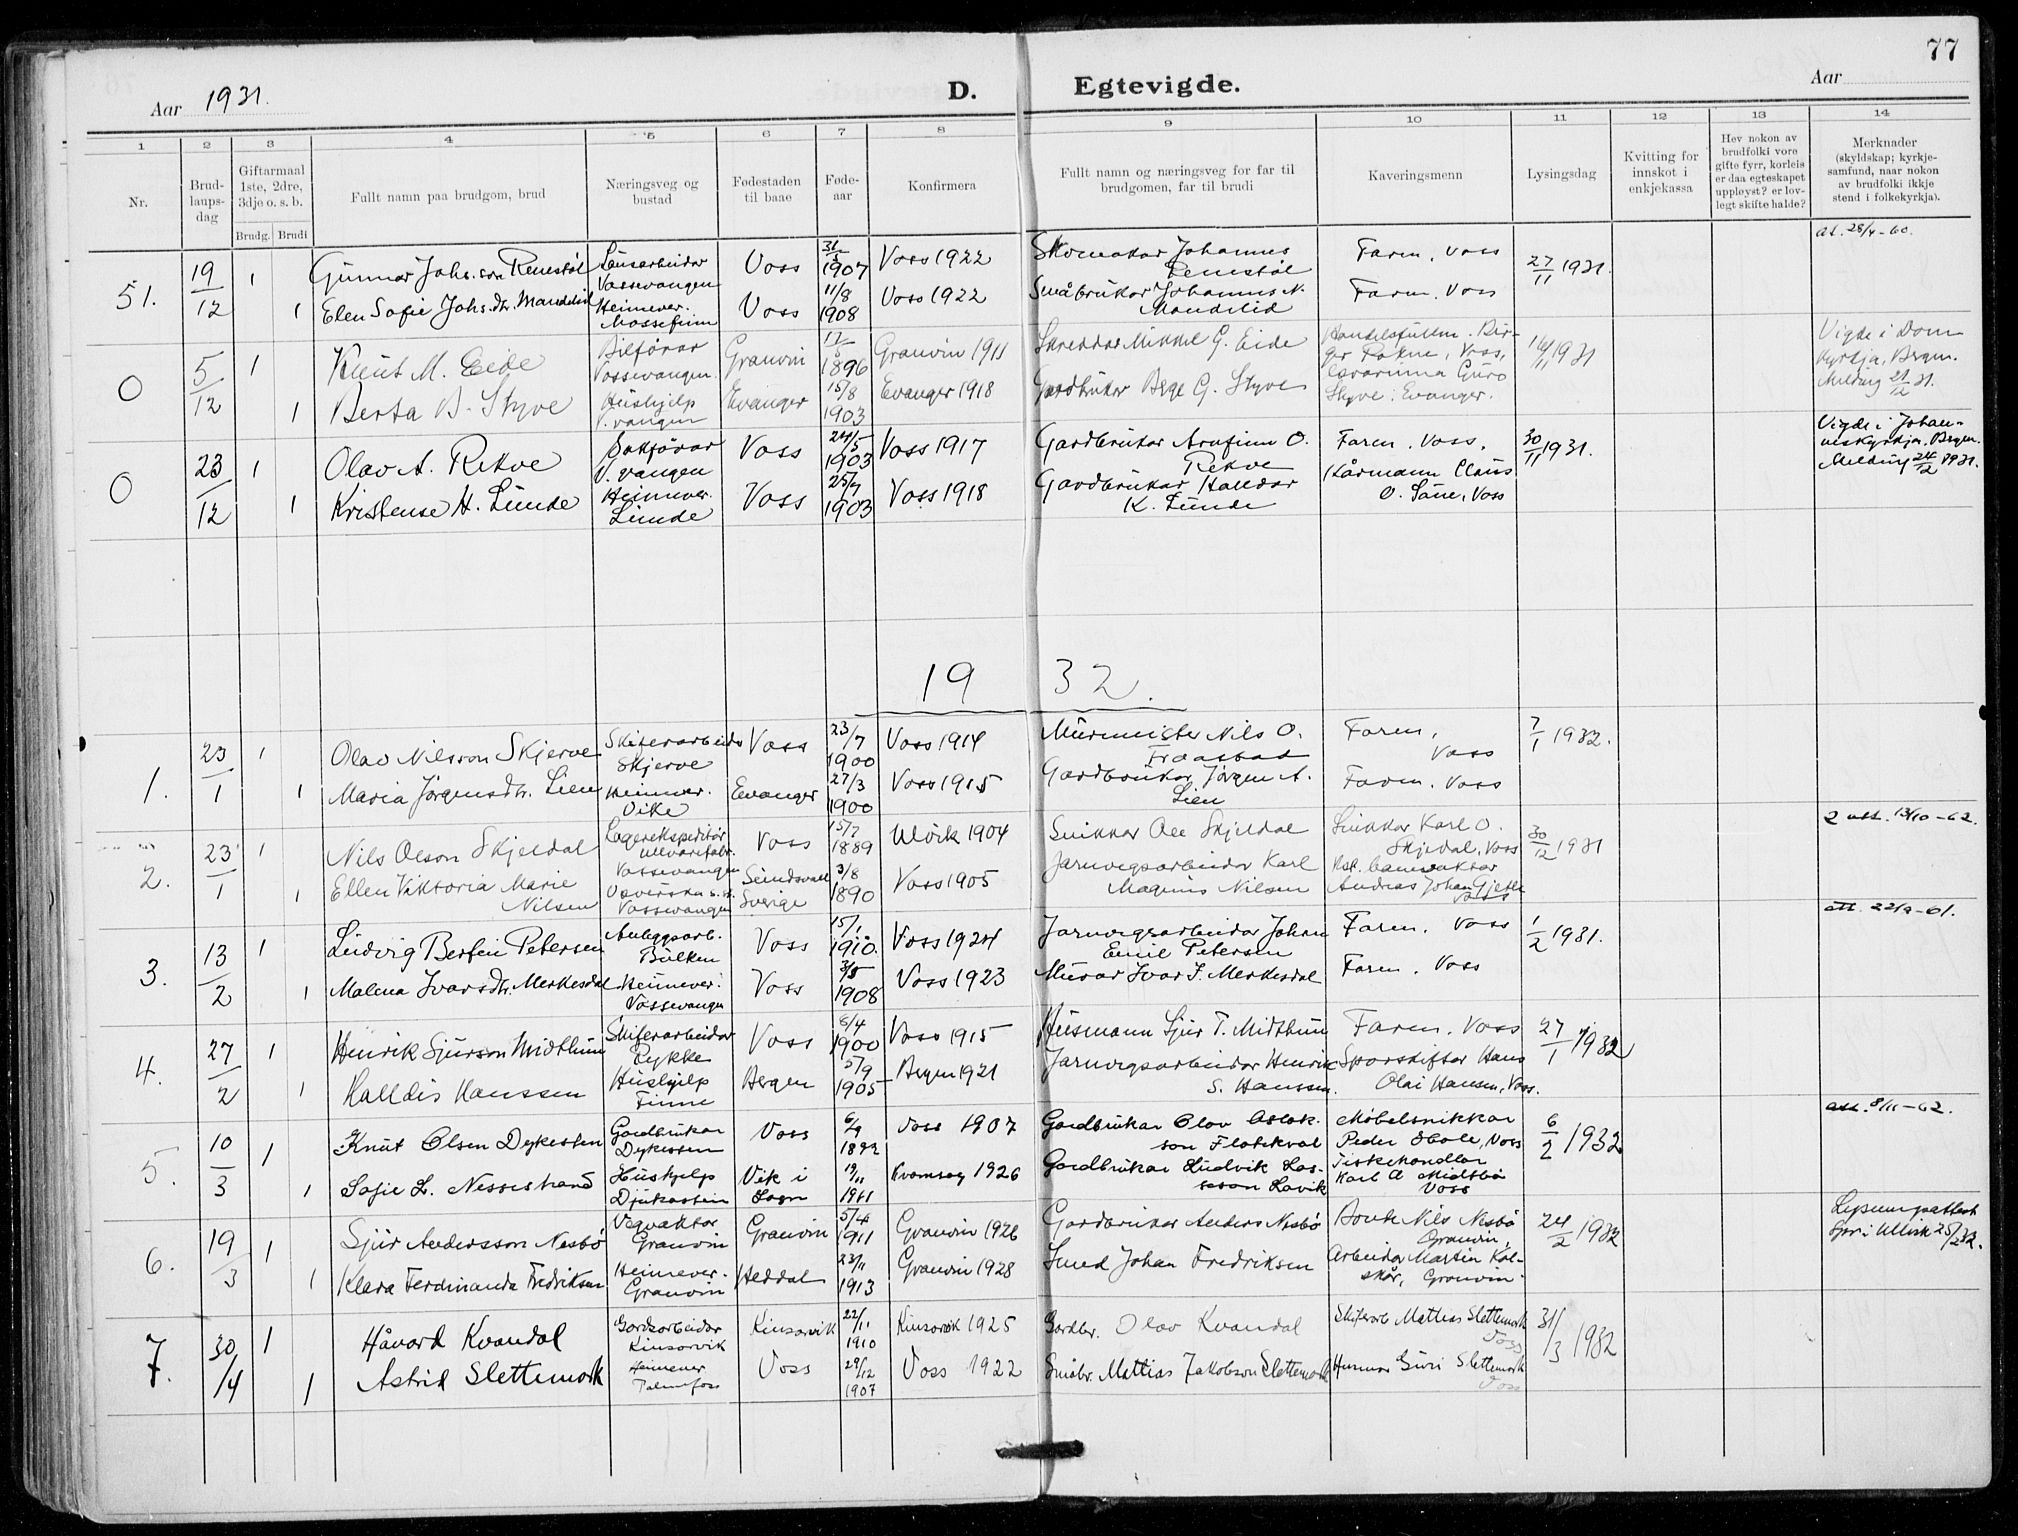 77
Aar 1931.
D. Egtevigde.
Aar
1 2 3 4 5 6 7 8 9 10 11 12 13 14
Nr.
Brud-
laups-
dag
Giftarmaal
1ste, 2dre,
3dje o. s. b.
Brudg. Brudi
Fullt namn paa brudgom, brud
Næringsveg og
bustad
Fødestaden
til baae
Føde-
aar
Konfirmera
Fullt namn og næringsveg for far til
brudgomen, far til brudi
Kaveringsmenn
Lysingsdag
Kvitting for
innskot i
enkjekassa
Hev nokon av
brudfolki vore
gifte fyrr, korleis
er daa egteskapet
uppløyst? er lov-
legt skifte halde?
Merknader
(skyldskap; kyrkje-
samfund, naar nokon
av brudfolki ikkje
stend i folkekyrkja).
51. 19/12
1 Gunnar Johs.son Renestøl
Vossevangen
Voss 1907 Voss 1922
Skomakar Johannes
Renestøl
Faren, Voss
27/11 1931.
at. 28/4-60.
1 Elen Sofie Johs.dtr. Mandelid
Heimever.
Voss 11/8 1908 Voss 1922
Småbrukar Johannes N.
Mandelid
Faren. Voss
0 5/12
1 Knut M. Eide
Bilførar
Vossevangen
Granvin 1896 Granvin 1911
Skreddar Mikkel G. Eide
Voss,
1931
Vigde i Dom-
kyrkja, Bergen.
Melding 21/12 31.
1 Berta B. Styve
Hushjelp
V.vangen
Evanger 15/8 1903 Evanger 1918
Gardbrukar Berge G. Styve
Guro
Styve, Evanger.
0 23/12
1 Olav A. Rekve
Sakførar
V.vangen
Voss 24/5 1903 Voss 1917
Gardbrukar Arnfinn O.
Rekve
Faren, Voss.
30/11 1931.
Vigde i Johan-
neskyrkja, Bergen.
Melding 24/12 1931.
1 Kristense H. Lunde
Heimever.
Lunde
Voss 25/7 1903 Voss 1918
Gardbrukar Halldor
K. Lunde
Kårmann Claus
Voss
19 32.
1. 23/1
1 Olav Nilsson Skjerve
Skiferarbeidar
Skjerve
Voss 23/7 1900 Voss 1914
Murmeister Nils O.
Faren,
Voss
7/1 1932.
1 Maria Jørgensdtr. Lien
Heimever.
Voss 1915
Evanger 27/3 1900
Gardbrukar Jørgen A.
Lien
Faren. Voss
2. 23/1
1 Nils Olson Skjeldal
Lagerekspeditør
Vossevangen
Voss 15/7 1889 Ulvik 1904
Snikkar Ole Skjeldal
Snikkar Karl O.
Skjeldal, Voss
30/12 1931
2 att. 13/10-62.
1 Ellen Viktoria Marie
Nilsen
Vossevangen
Sundsvall
Sverige
3/8 1890 Voss 1905
Jarnvegsarbeidar Karl
Magnus Nilsen
Andreas Johan Gjetle
Voss
3. 13/2
1 Ludvig Berfin Petersen
Anleggsarb.
Bulken
Voss 15/1 1910. Voss 1924
Jarnvegsarbeidar Johan
Emil Petersen
Faren. Voss
1/2 1931.
att. 22/9-61.
1 Malena Ivarsdtr. Merkesdal
Heimever.
Vossevangen
Voss 3/5 1908 Voss 1923
Murar Ivar I. Merkesdal
Faren. Voss
4. 27/2
1 Henrik Sjurson Midthun
Skiferarbeidar
Rykke
Voss 6/4 1900 Voss 1915
Husmann Sjur T. Midthun
Faren. Voss
27/1 1932
1 Halldis Hanssen
Hushjelp
Finne
Bergen 5/9 1905 Bergen 1921
Jarnvegsarbeidar Henrik
S. Hanssen
Sporskiftar Hans
Olai Hansen, Voss.
5. 10/3
1 Knut Olsen Dykesten
Gardbrukar
Dykesten
Voss 6/9 1892 Voss 1907
Gardbrukar Olav Aslak-
son Flatekval
Møbelsnikkar
Peder Voss
6/2 1932
att. 8/11-62.
1 Sofie L. Nessestrand
Hushjelp
Djukastein
Vik i
Sogn
19/11 1911 Kvamsøy 1926
Gardbrukar Ludvik Las-
Fiskehandlar
Karl A Midtbø
Voss
6. 19/3
1 Sjur Andersson Nesbø
Vegvaktar
Granvin
Granvin 5/4 1911 Granvin 1926
Gardbrukar Anders Nesbø
Nils Nesbø
Granvin,
24/2 1932
1 Klara Ferdinanda Fredriksen
Heimever.
Granvin
Heddal 23/11 1913 Granvin 1928
Smed Johan Fredriksen
Arbeidar Martin Kol-
skår, Granvin.
7. 30/4
1 Håvard Kvandal
Gardsarbeidar
Kinsarvik
Kinsarvik 22/11 1910 Kinsarvik 1925
Gardbr. Olav Kvandal
Skiferarb Mattias Slettemark
Voss
31/3 1932
1 Astrid Slettemark
Heimever
Palmafoss
Voss 29/12 1907 Voss 1922
Småbr. Mattias Jakobson Slettemark
Husmor Guri Slettemark
Voss